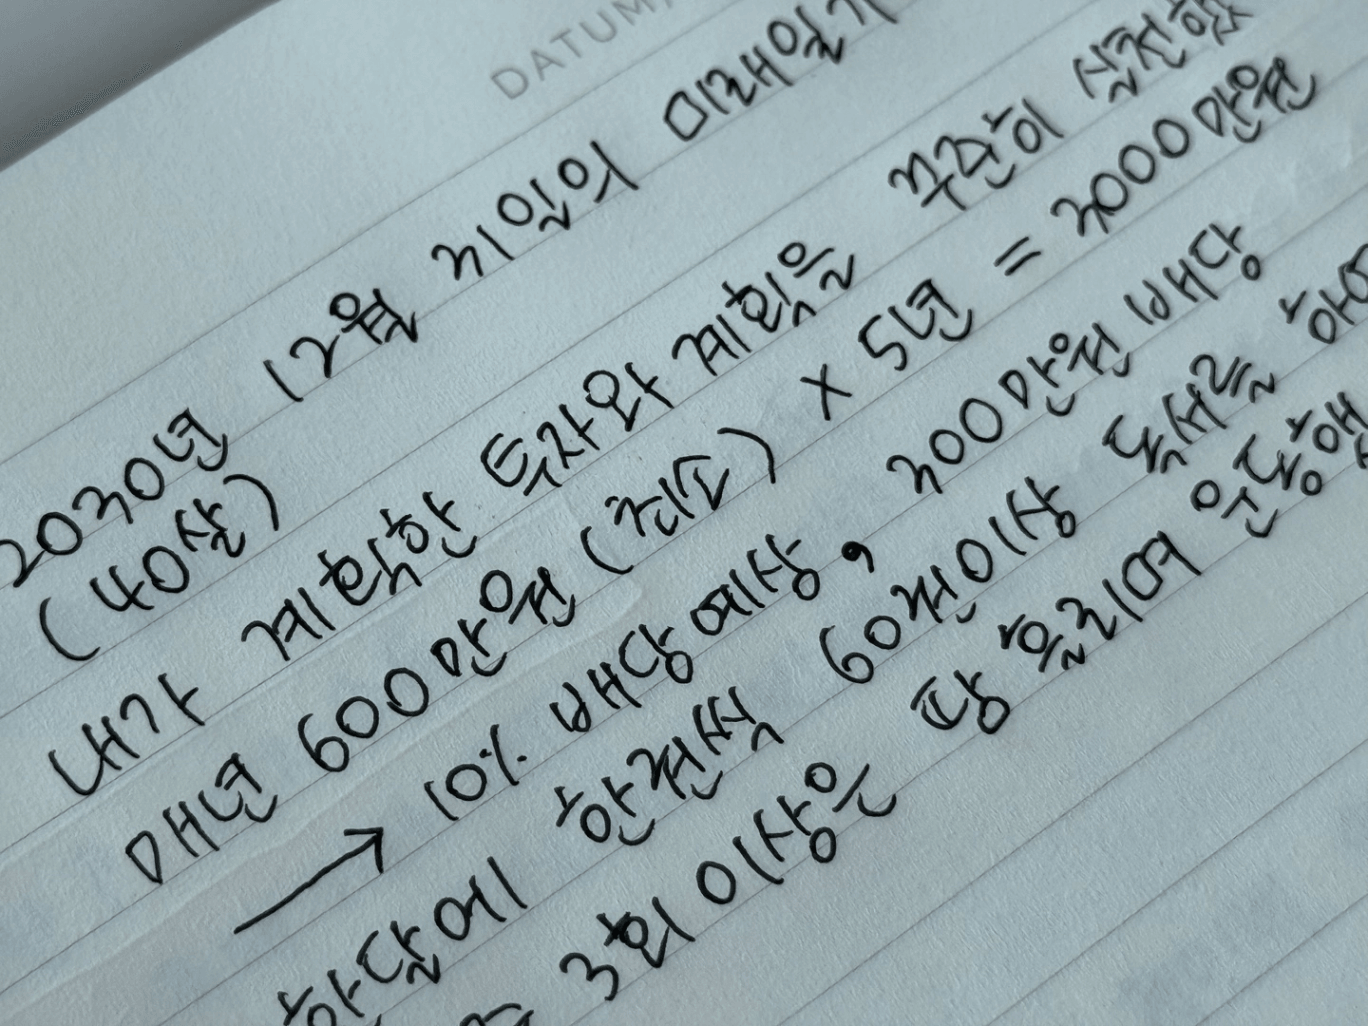 DATUM
2030년 12월 31일의 미래일기
(40살)
내가 계획한 투자와 계획을 꾸준히 실천했
매년 600만원 (최소) × 5년 = 3000만원
→ 10% 배당예상, 300만원 배당
한달에 한권씩 60권이상 독서를 하여
3회 이상은 땀 흘리며 운동했